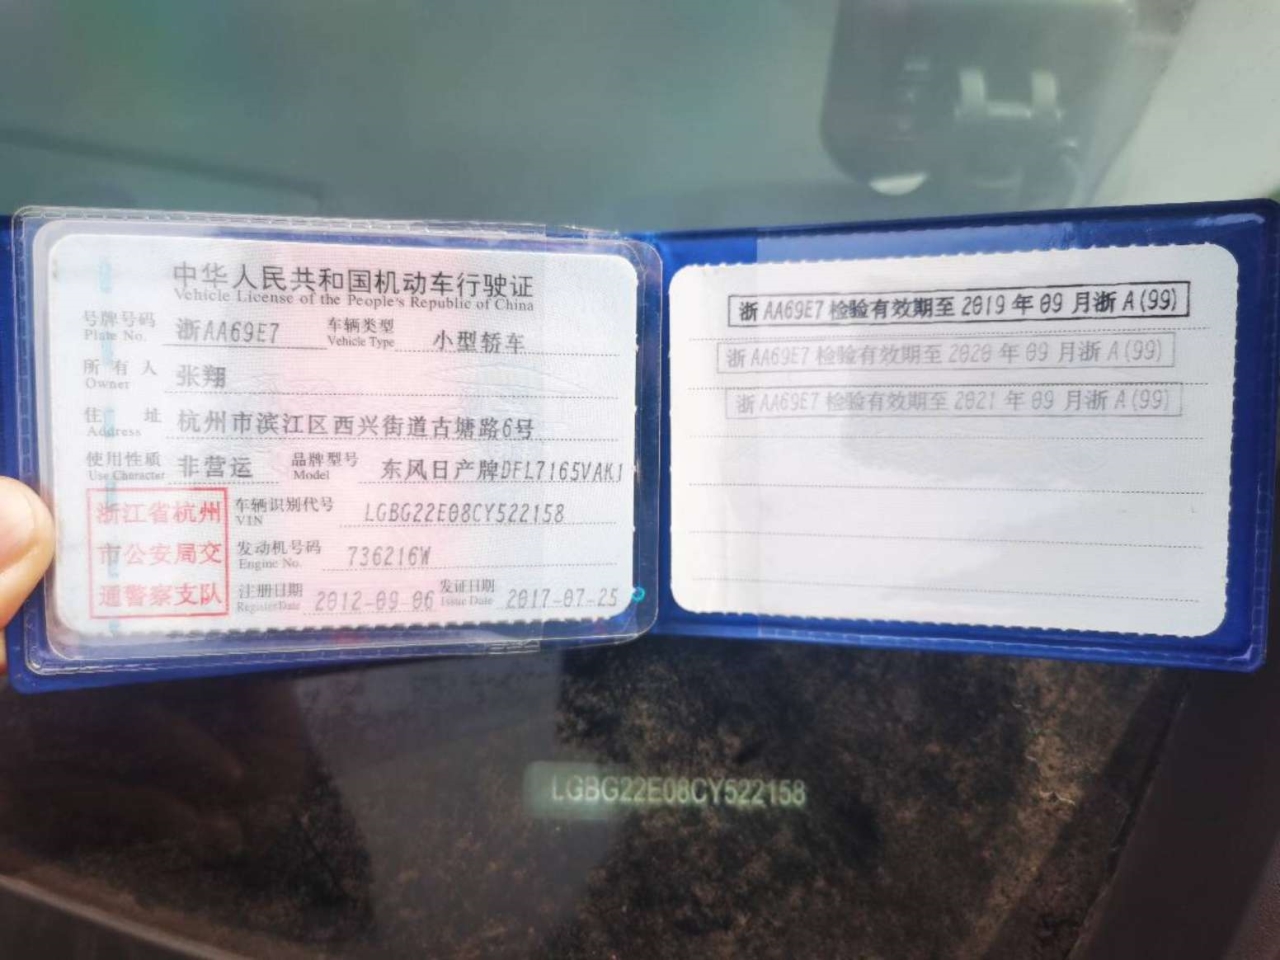 中华人民共和国机动车行驶证
Vehicle License of the People's Republic of China
号牌号码 浙AA69E7 车辆类型 小型轿车
Plate No. Vehicle Type
所有人 张翔
Owner
住址 杭州市滨江区西兴街道古塘路6号
Address
使用性质 非营运 品牌型号 东风日产牌DFL7165VAK1
Use Character Model
浙江省杭州
市公安局交
通警察支队
车辆识别代号 LGBG22E08CY522158
VIN
发动机号码 736216W
Engine No.
注册日期 2012-09-06 发证日期 2017-07-25
Register Date Issue Date
浙AA69E7检验有效期至2019年09月浙A(99)
浙AA69E7检验有效期至2020年09月浙A(99)
浙AA69E7检验有效期至2021年09月浙A(99)
LGBG22E08CY522158